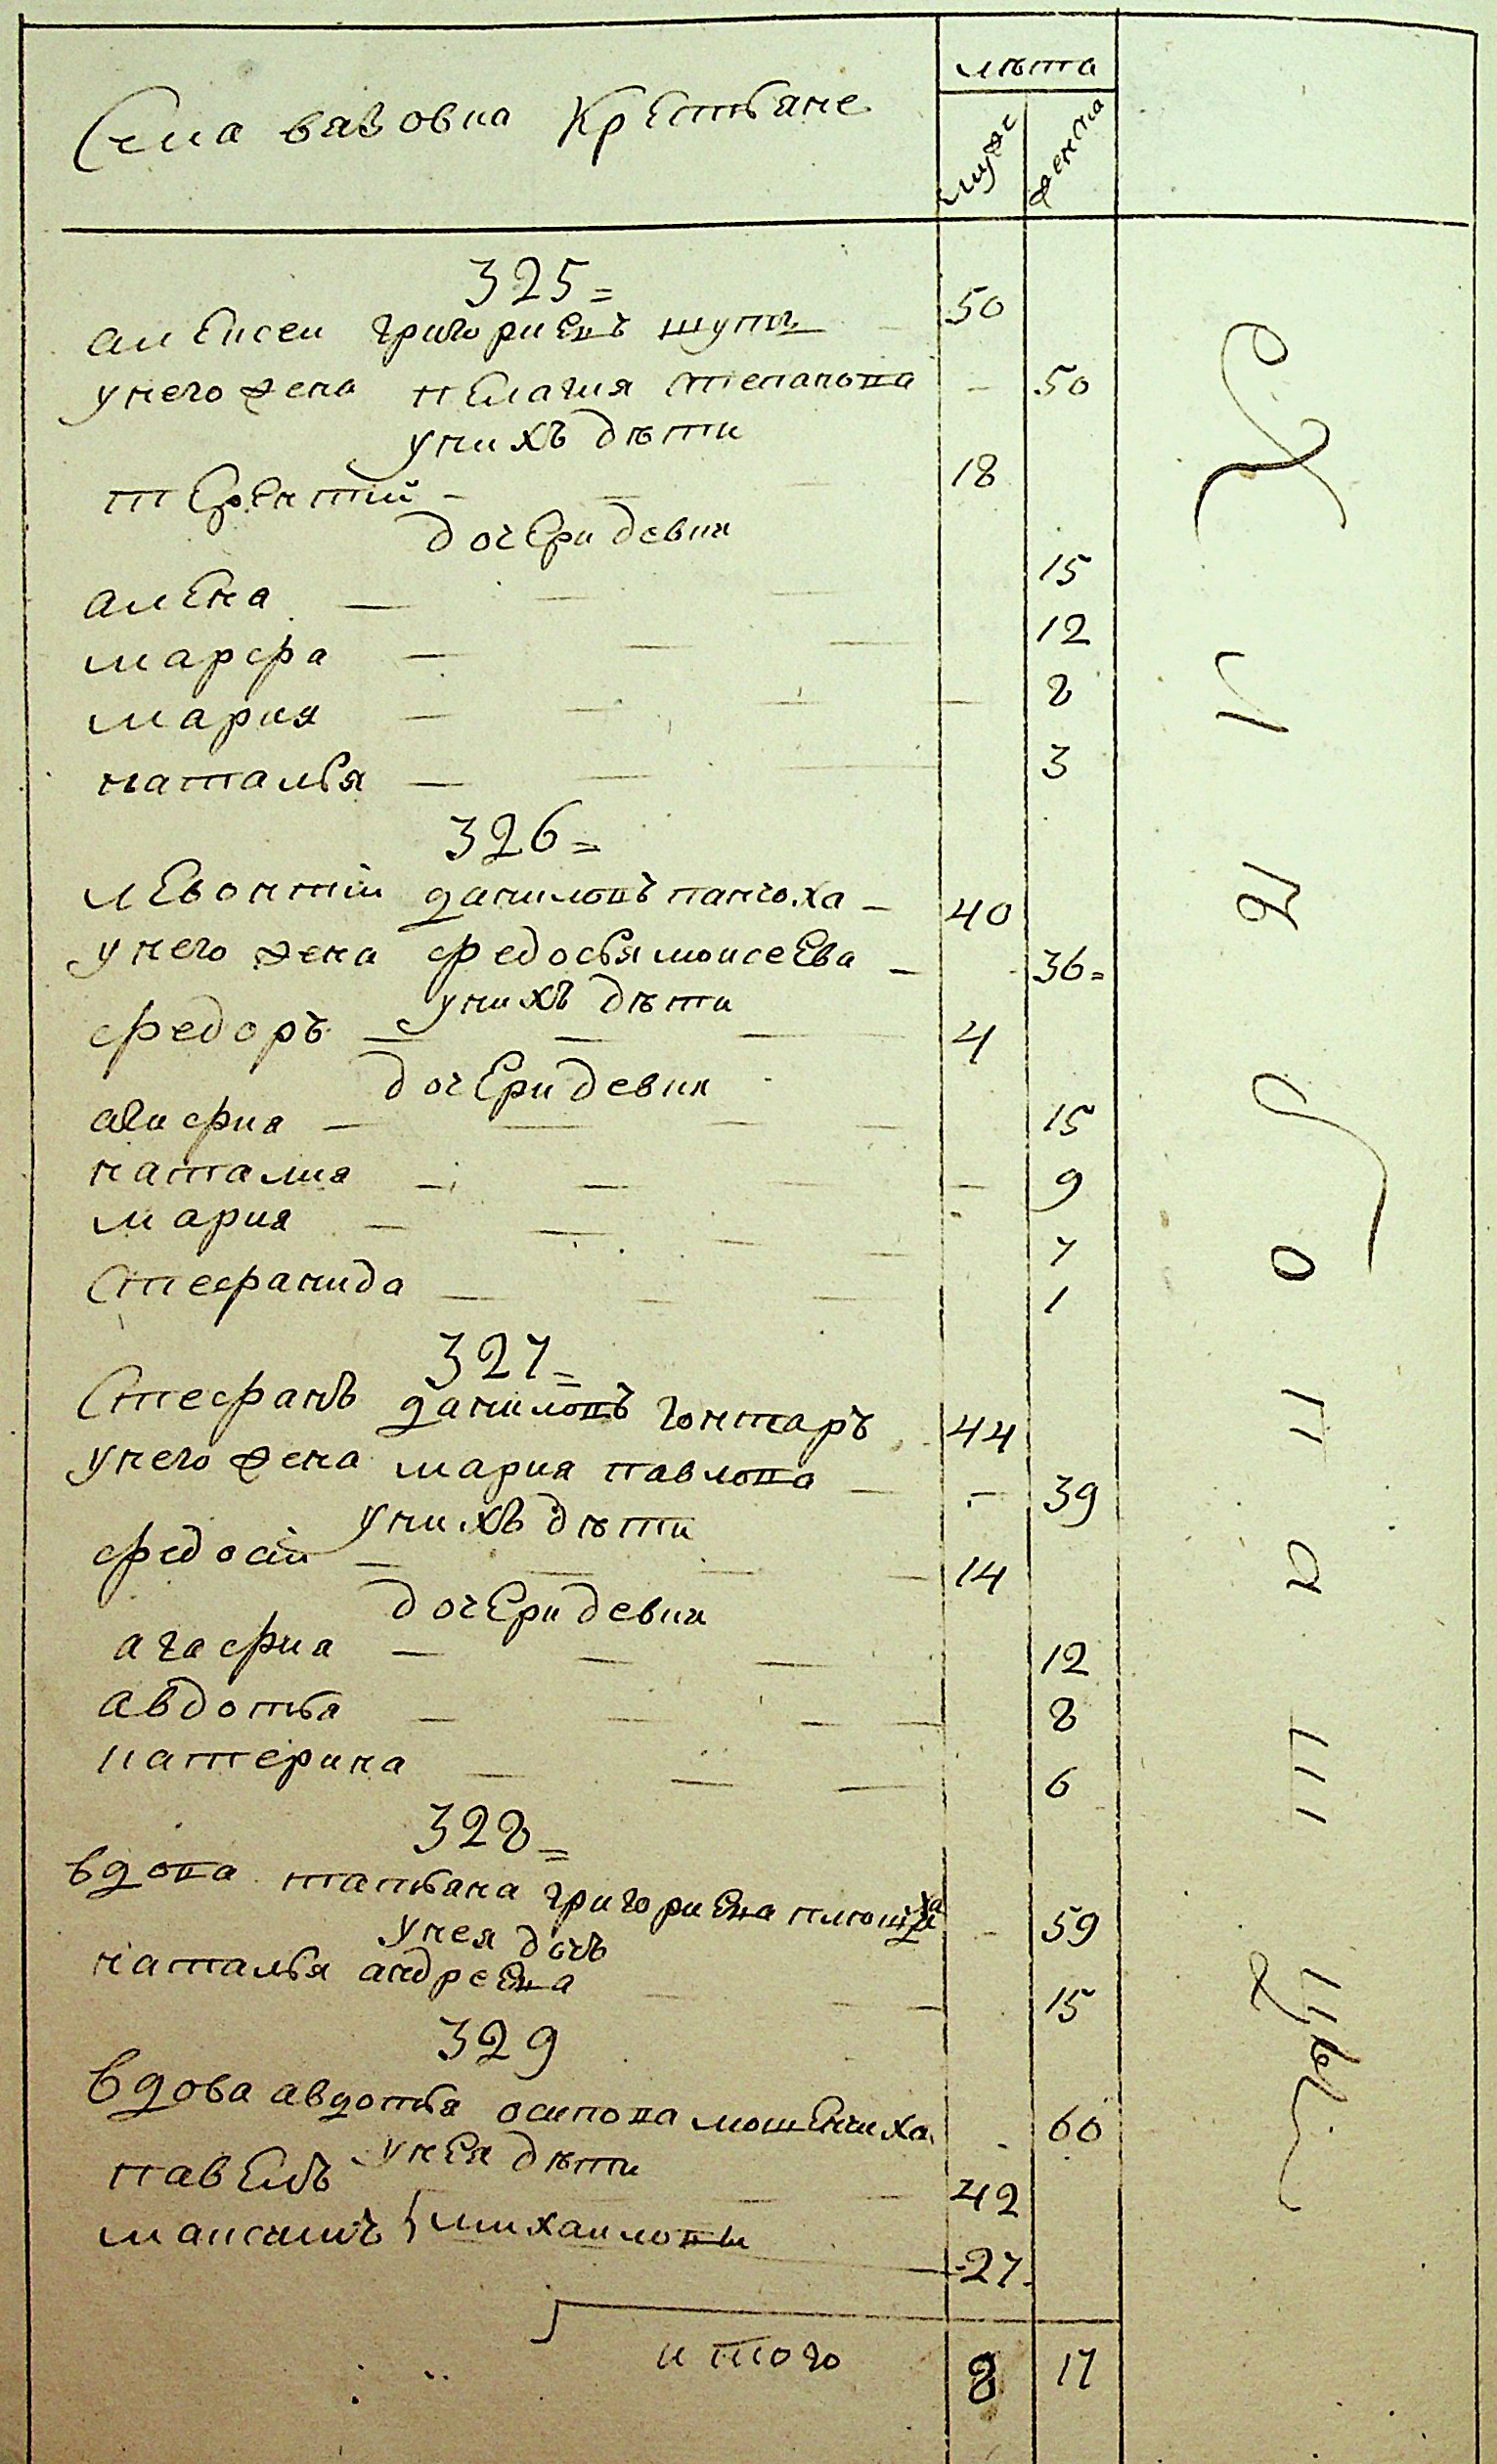 Села вязовка Крестьяне
лѣта
мужс
женска
325=
алексеи григориевъ шупыг
унего жена пелагия степанова 50
унихъ дѣти
терентий 18
дочери девки
алена 15
марфа 12
мария 8
наталья 3
326=
левонтiи даниловъ пангоха 40
унего жена федосья моисеева 36=
унихъ дѣти
федоръ 4
дочери девки
агафия 15
наталия 9
мария 7
стефанида 1
327=
Стефанъ даниловъ гонтаръ 44
унего жена мария павлова 39
унихъ дѣти
федосiи 14
дочери девки
агафия 12
авдотья 8
катерина 6
328=
вдова татьяна григориевна 59
унея дочь
наталья андреевна 15
329
вдова авдотья осипова мошенчиха 60
унея дѣти
павелъ 42
максимъ } михаиловы 27
итого 8 17